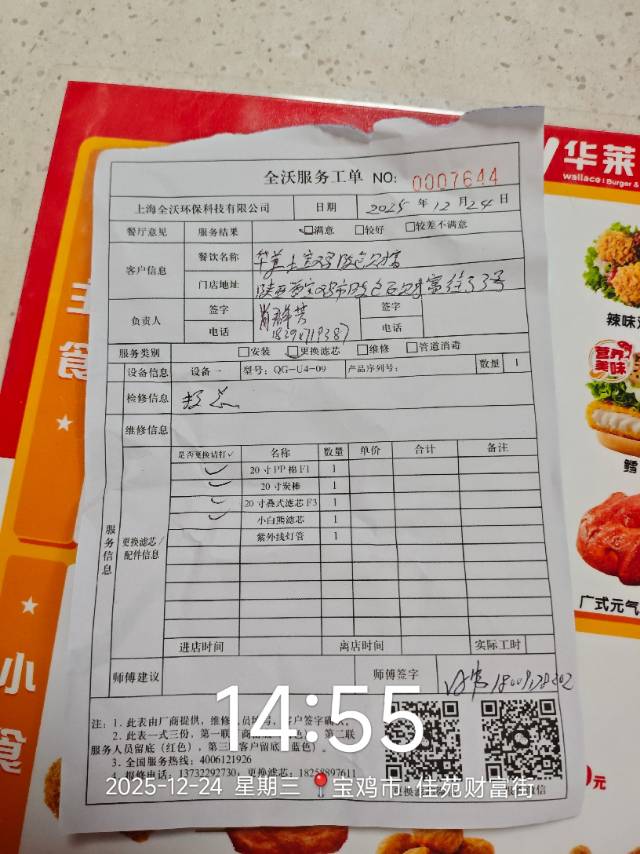 华莱
wallace | Burger &
全沃服务工单 NO: 0007644
上海全沃环保科技有限公司 日期 2025年12月24日
餐厅意见 服务结果 满意 较好 较差不满意
客户信息 餐饮名称 华莱士宝鸡
门店地址 陕西省宝鸡市
负责人 签字 签字
电话 电话
服务类别 安装 更换滤芯 维修 管道消毒
服务信息
设备信息 设备一 型号: QG-U4-09 产品序列号: 数量 1
检修信息 换芯
维修信息
更换滤芯/配件信息
是否更换请打✓ 名称 数量 单价 合计 备注
✓ 20寸PP棉F1 1
✓ 20寸炭棒 1
✓ 20寸叠式滤芯F3 1
✓ 小白熊滤芯 1
紫外线灯管 1
进店时间 离店时间 实际工时
师傅建议 师傅签字
注: 1. 此表由厂商提供, 维修
2. 此表一式三份, 第一联 第二联
服务人员留底(红色), 第三 客户留底 蓝色).
3. 全国服务热线: 4006121926
4. 报修电话: 13732292730, 更换滤芯: 18258897611
14:55
2025-12-24 星期三 宝鸡市·佳苑财富街
主
食
小
食
辣味
营养美味
鳕
广式元气
元